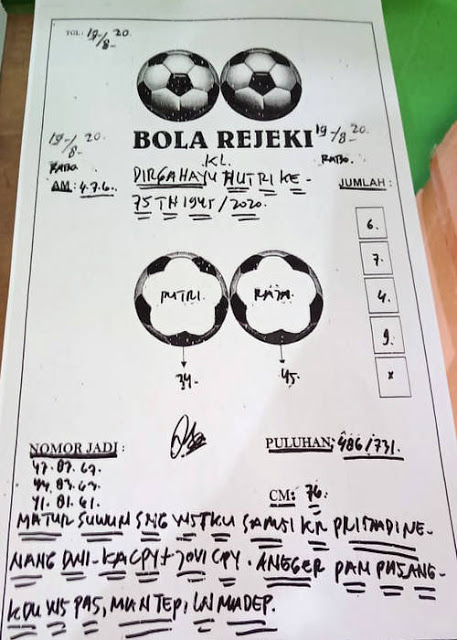 TGL : 19/8- 20.
BOLA REJEKI
19/8- 20.
RABO.
19/8- 20.
RABO.
KL.
AM: 4.7.6.
DIRGAHAYU HUT RI KE-
75 TH 1945/2020.
JUMLAH :
6.
7.
4.
9.
x
PUTRI.
RAJA.
34.
45.
NOMOR JADI :
PULUHAN: 486/731.
47. 07. 67.
44. 04. 64.
41. 01. 61.
CM: 76.
MATUR SUWUN SNG WSTKU SAMSI KR
NANG DWI-KACPY + JOVI CPY. ANEGER PAM PASANG-
KDU WS PAS, MANTEP, LN MADEP.